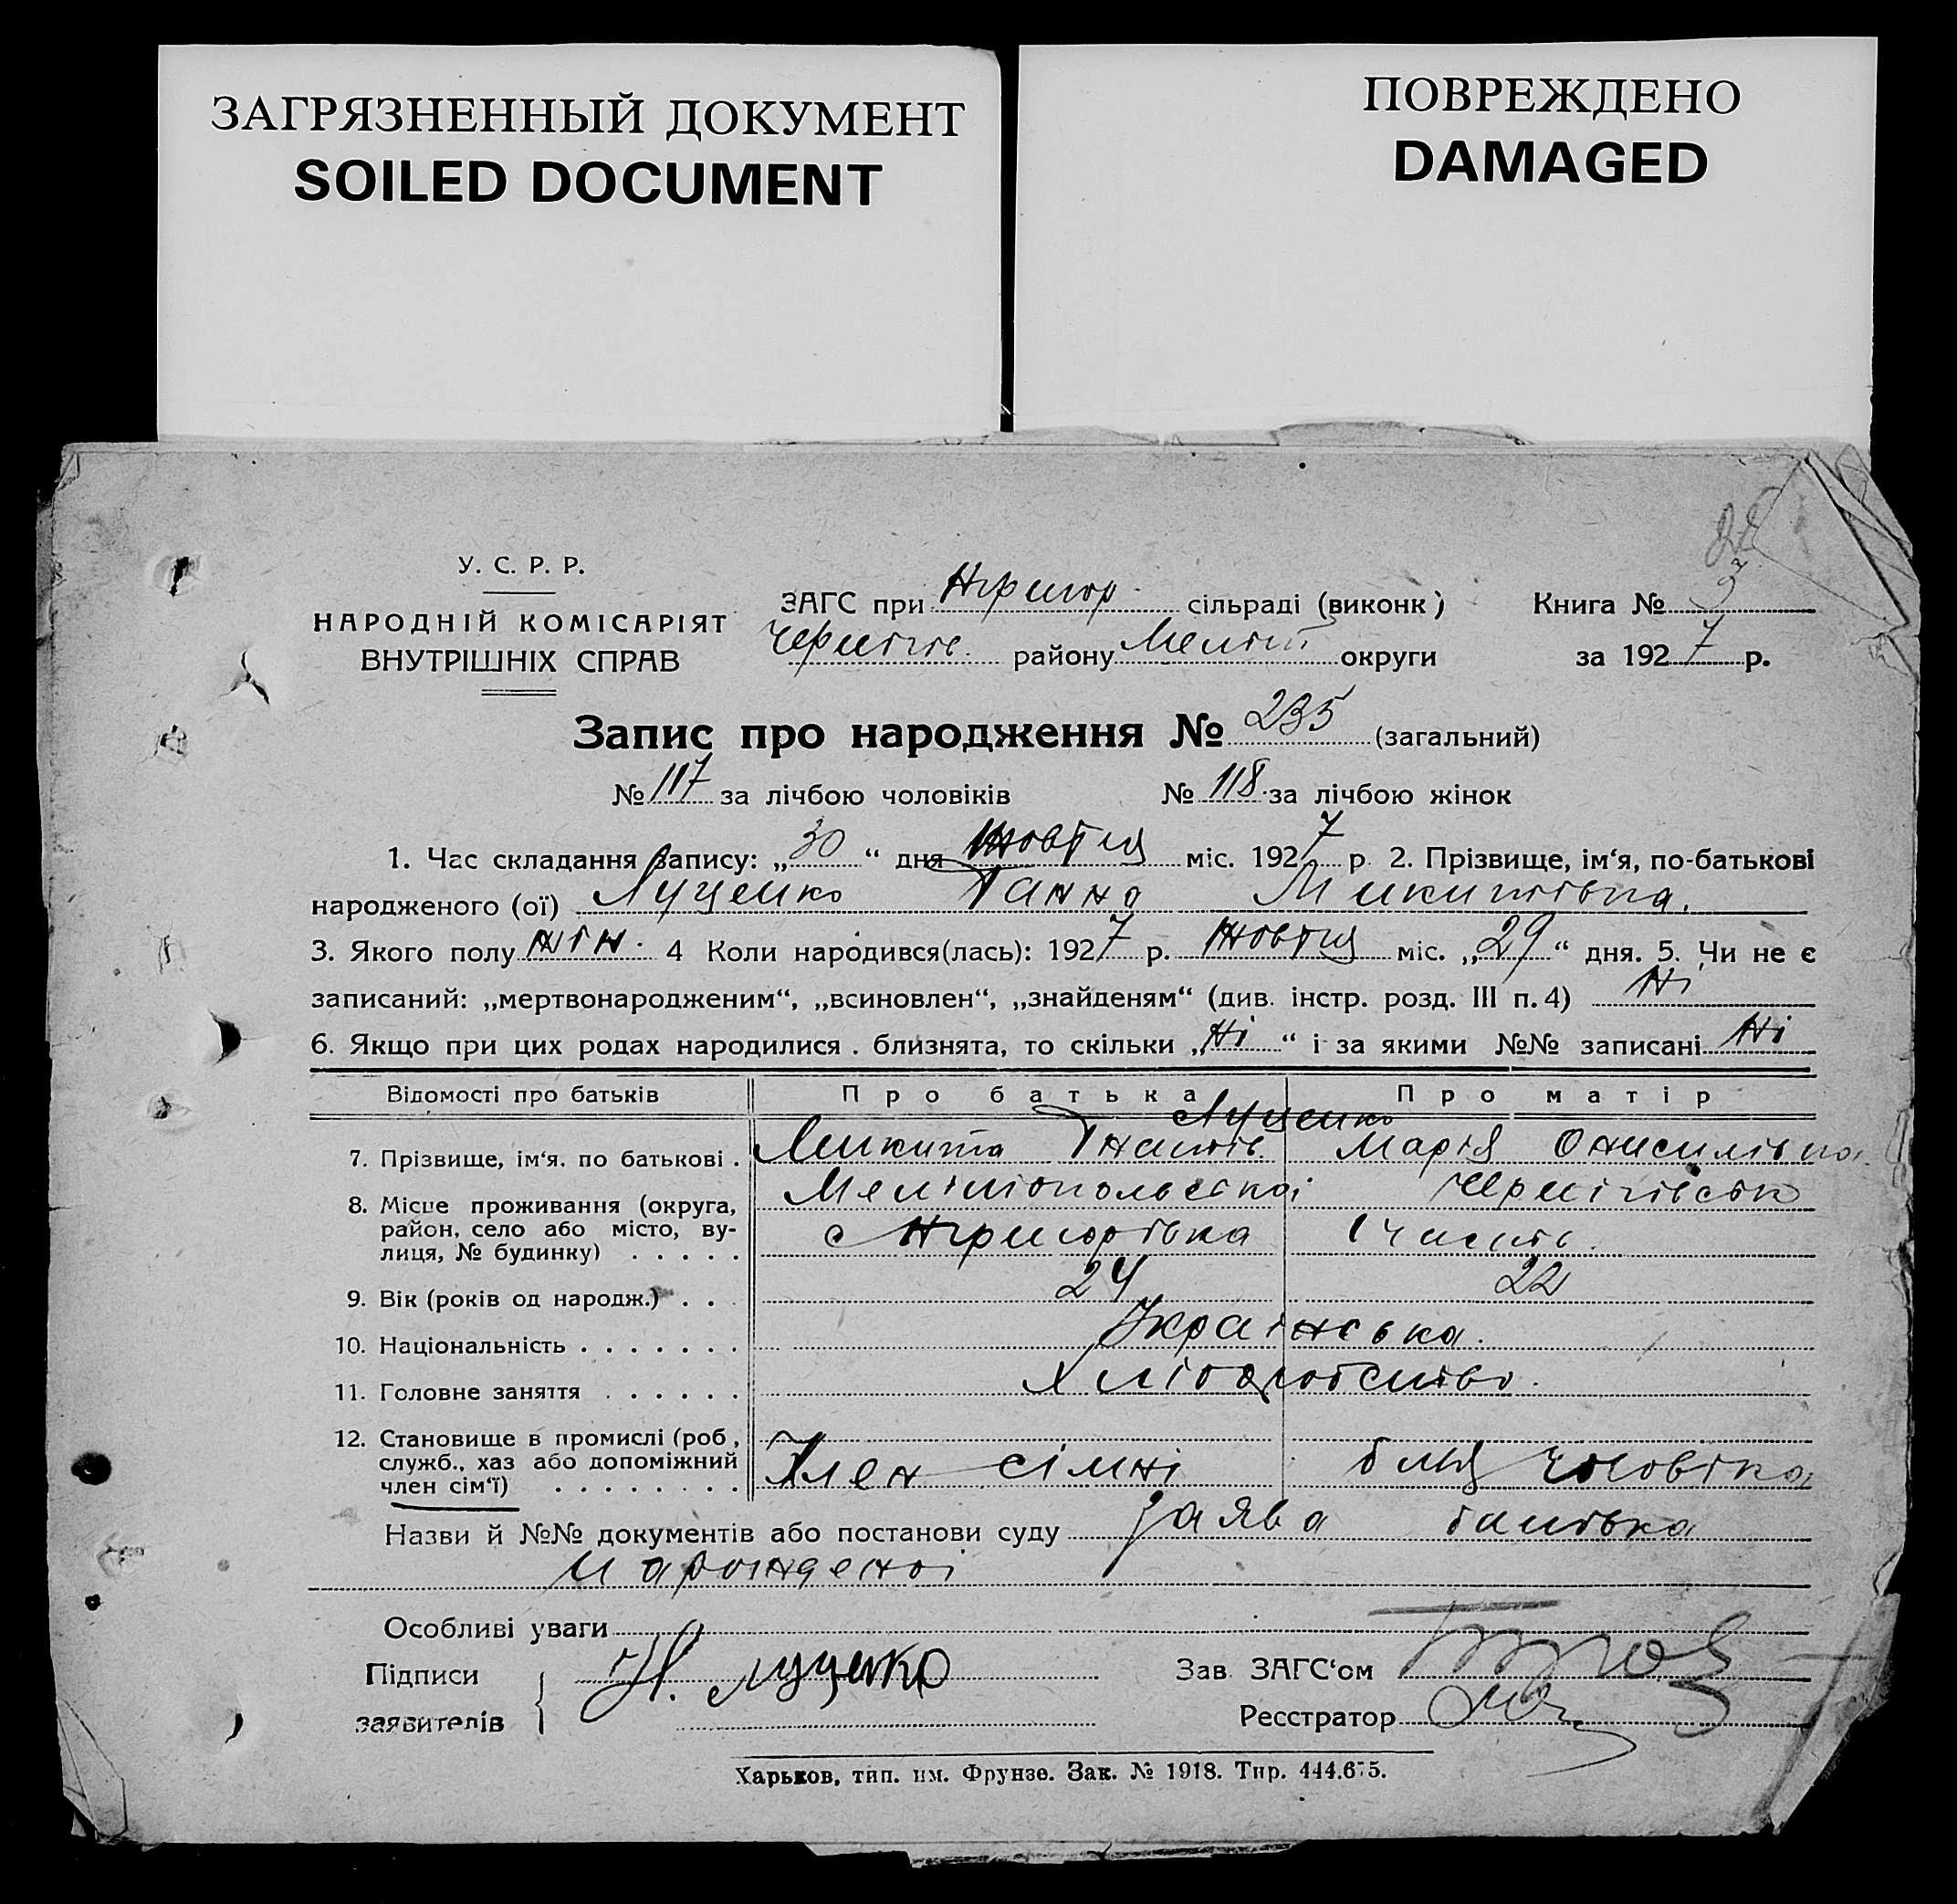 ЗАГРЯЗНЕННЫЙ ДОКУМЕНТ
SOILED DOCUMENT
ПОВРЕЖДЕНО
DAMAGED
У. С. Р. Р.
НАРОДНІЙ КОМІСАРІЯТ
ВНУТРІШНІХ СПРАВ
ЗАГС при сільраді (виконк)
Книга № 3
Черніг. району Меліт округи
за 1927 р.
Запис про народження № 235 (загальний)
№ 117 за лічбою чоловіків № 118 за лічбою жінок
1. Час складання запису: „30“ дня Жовтня міс. 1927 р. 2. Прізвище, ім‘я, по-батькові
народженого (ої) Луценко Ганна Микитівна.
3. Якого полу жін. 4 Коли народився(лась): 1927 р. Жовтня міс. „29“ дня. 5. Чи не є
записаний: „мертвонародженим“, „всиновлен“, „знайденям“ (див. інстр. розд. III п. 4) Ні
6. Якщо при цих родах народилися . близнята, то скільки „Ні“ і за якими №№ записані Ні
Відомості про батьків
Про батька
Про матір
Луценко
7. Прізвище, ім‘я. по батькові . Микита Гнатів. Марія Онисимівна.
8. Місце проживання (округа, Мелітопольської Чернігівськ
район, село або місто, ву-
лиця, № будинку) . . . . . с
9. Вік (років од народж.) . . 24 22
10. Національність . . . . . . . Українська.
11. Головне заняття . . . . . . Хліборобство.
12. Становище в промислі (роб,
служб., хаз або допоміжний
член сім‘ї) . . . . . . . . Член сімні біля чоловіка
Назви й №№ документів або постанови суду Заява батька
нарожденої
Особливі уваги
Підписи
заявителів
Н. Луценко
Зав ЗАГС‘ом
Реєстратор
Харьков, тип. им. Фрунзе. Зак. № 1918. Тир. 444.675.